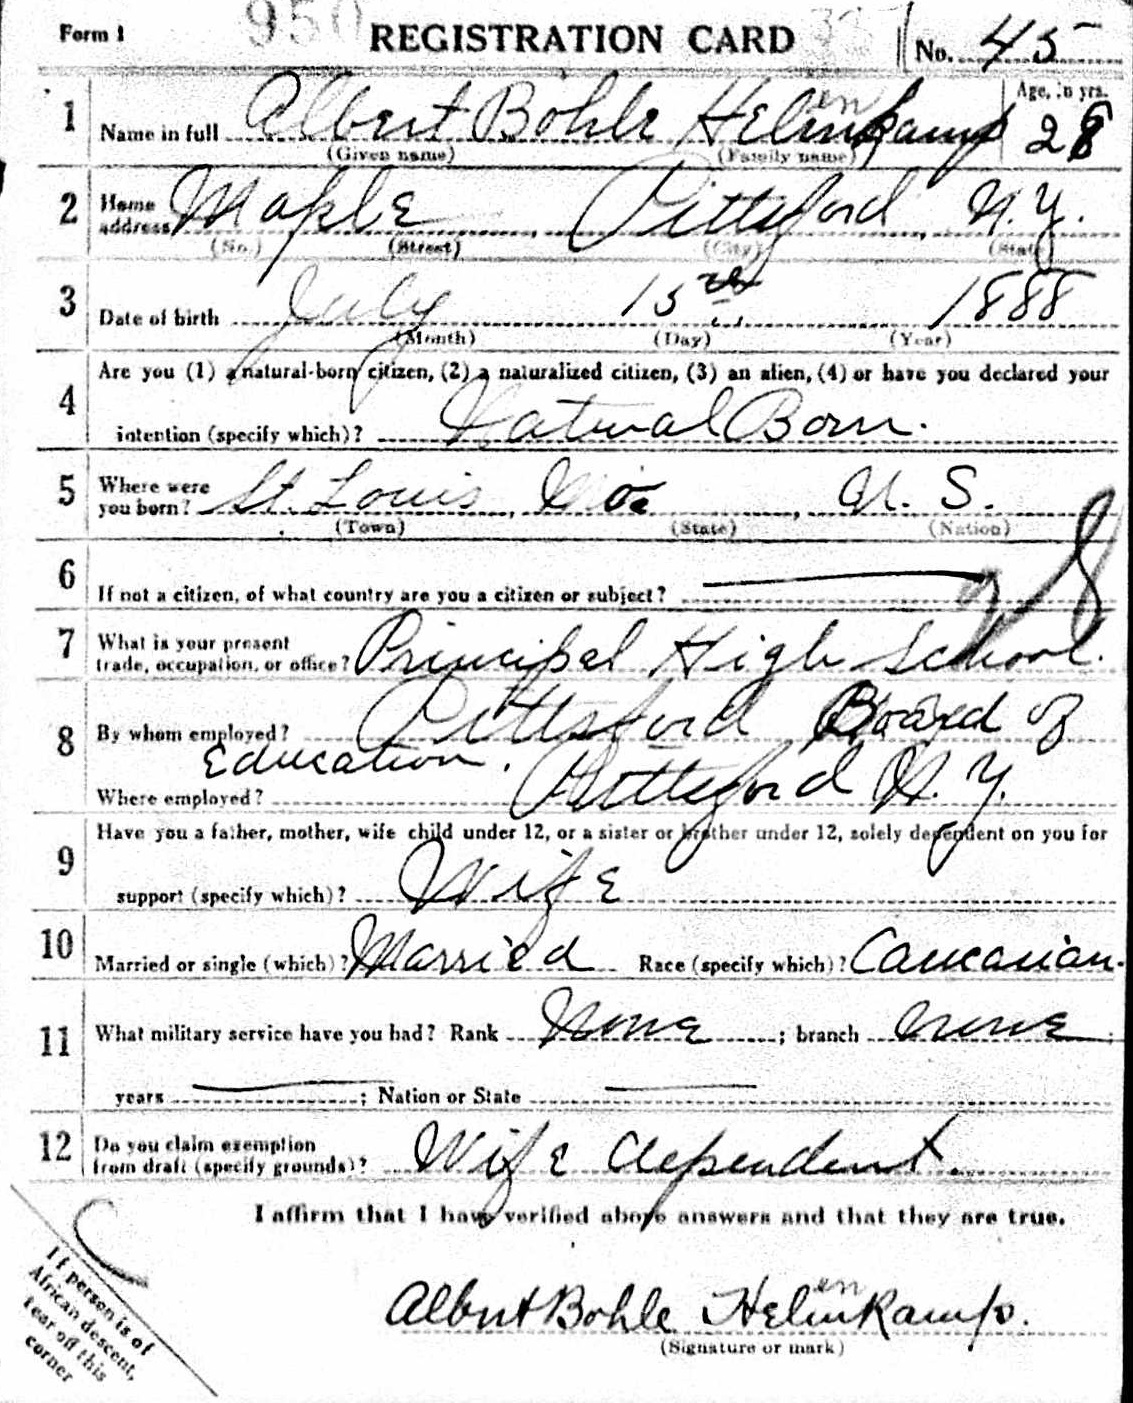 Form 1 950 REGISTRATION CARD No. 45
1 Name in full Albert Bohle Helmkamp Age, in yrs. 28
en
(Given name) (Family name)
2 Home address Maple Pittsford, N.Y.
(No.) (Street) (City) (State)
3 Date of birth July 15th 1888
(Month) (Day) (Year)
4 Are you (1) a natural-born citizen, (2) a naturalized citizen, (3) an alien, (4) or have you declared your
intention (specify which)? Natural Born.
5 Where were you born? St. Louis, Mo. U. S.
(Town) (State) (Nation)
6 If not a citizen, of what country are you a citizen or subject?
7 What is your present trade, occupation, or office? Principal High School.
8 By whom employed? Pittsford Board of
Education.
Where employed? Pittsford N.Y.
9 Have you a father, mother, wife child under 12, or a sister or brother under 12, solely dependent on you for
support (specify which)? Wife
10 Married or single (which)? Married Race (specify which)? Caucasian.
11 What military service have you had? Rank None ; branch None ;
years ; Nation or State
12 Do you claim exemption from draft (specify grounds)? Wife dependent.
I affirm that I have verified above answers and that they are true.
If person is of
African descent,
tear off this
corner
en
Albert Bohle Helmkamp.
(Signature or mark)